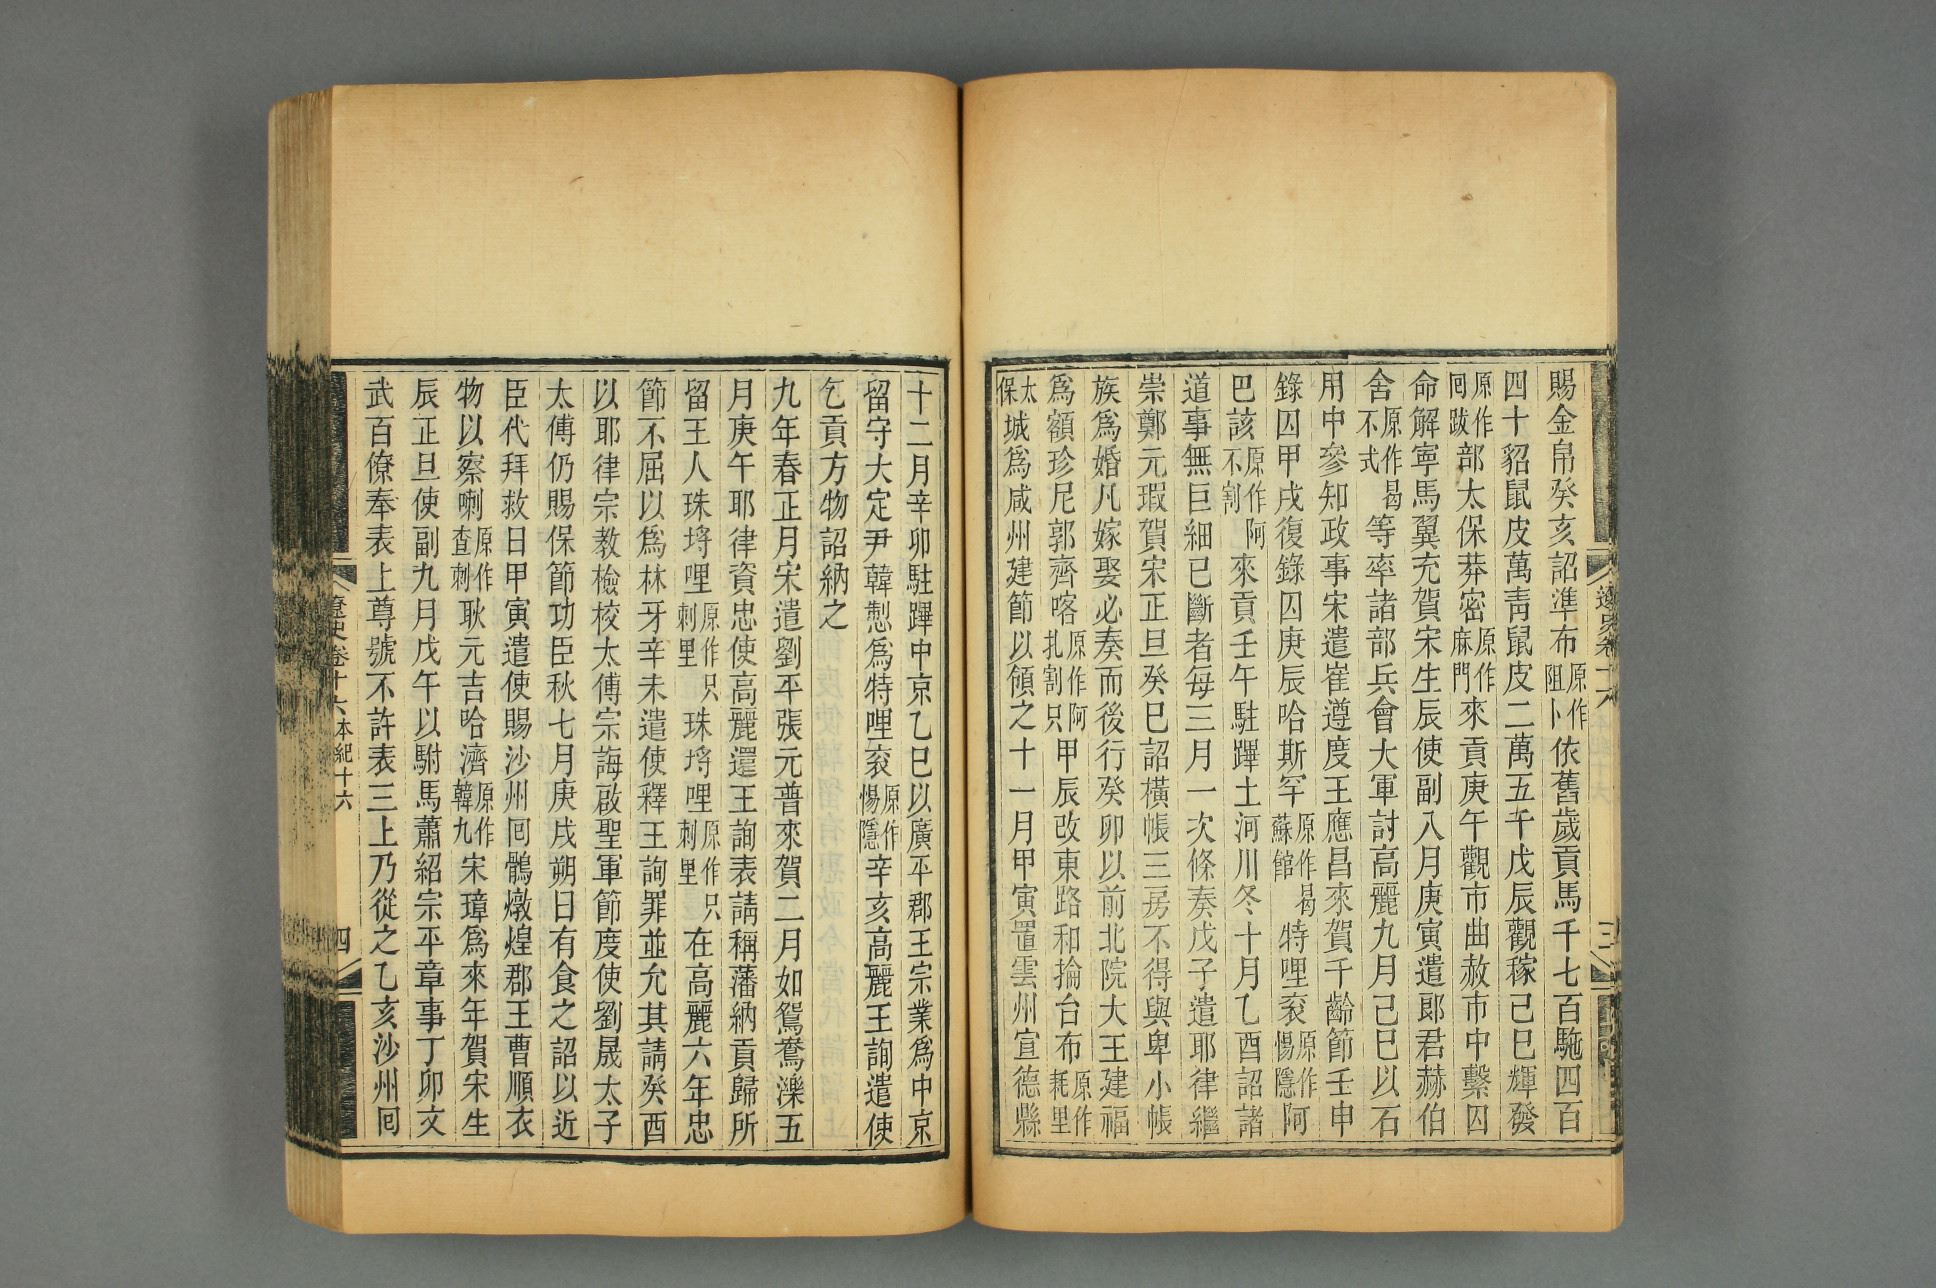 遼史卷十六
三
賜金帛癸亥詔準布原作阻卜依舊歲貢馬千七百駞四百
四十貂鼠皮萬靑鼠皮二萬五千戊辰觀稼己巳輝發
原作回跋部太保莽密原作麻門來貢庚午觀市曲赦市中繫囚
命解寧馬翼充賀宋生辰使副八月庚寅遣郞君赫伯
舍原作曷不式等率諸部兵會大軍討高麗九月己巳以石
用中參知政事宋遣崔遵度王應昌來賀千齡節壬申
錄囚甲戌復錄囚庚辰哈斯罕原作曷蘇館特哩衮原作惕隱阿
巴該原作阿不割來貢壬午駐蹕土河川冬十月乙酉詔諸
道事無巨細已斷者每三月一次條奏戊子遣耶律繼
崇鄭元瑕賀宋正旦癸巳詔橫帳三房不得與卑小帳
族爲婚凡嫁娶必奏而後行癸卯以前北院大王建福
爲額珍尼郭齊喀原作阿扎割只甲辰改東路和掄台布原作耗里
太保城爲咸州建節以領之十一月甲寅置雲州宣德縣
十二月辛卯駐蹕中京乙巳以廣平郡王宗業爲中京
留守大定尹韓㮛爲特哩衮原作惕隱辛亥高麗王詢遣使
乞貢方物詔納之
九年春正月宋遣劉平張元普來賀二月如鴛鴦濼五
月庚午耶律資忠使高麗還王詢表請稱藩納貢歸所
留王人珠埒哩原作只剌里珠埒哩原作只剌里在高麗六年忠
節不屈以爲林牙辛未遣使釋王詢罪並允其請癸酉
以耶律宗教檢校太傅宗誨啟聖軍節度使劉晟太子
太傅仍賜保節功臣秋七月庚戌朔日有食之詔以近
臣代拜救日甲寅遣使賜沙州回鶻燉煌郡王曹順衣
物以察喇原作查剌耿元吉哈濟原作韓九宋璋爲來年賀宋生
辰正旦使副九月戊午以駙馬蕭紹宗平章事丁卯文
武百僚奉表上尊號不許表三上乃從之乙亥沙州回
遼史卷十六 本紀十六
四